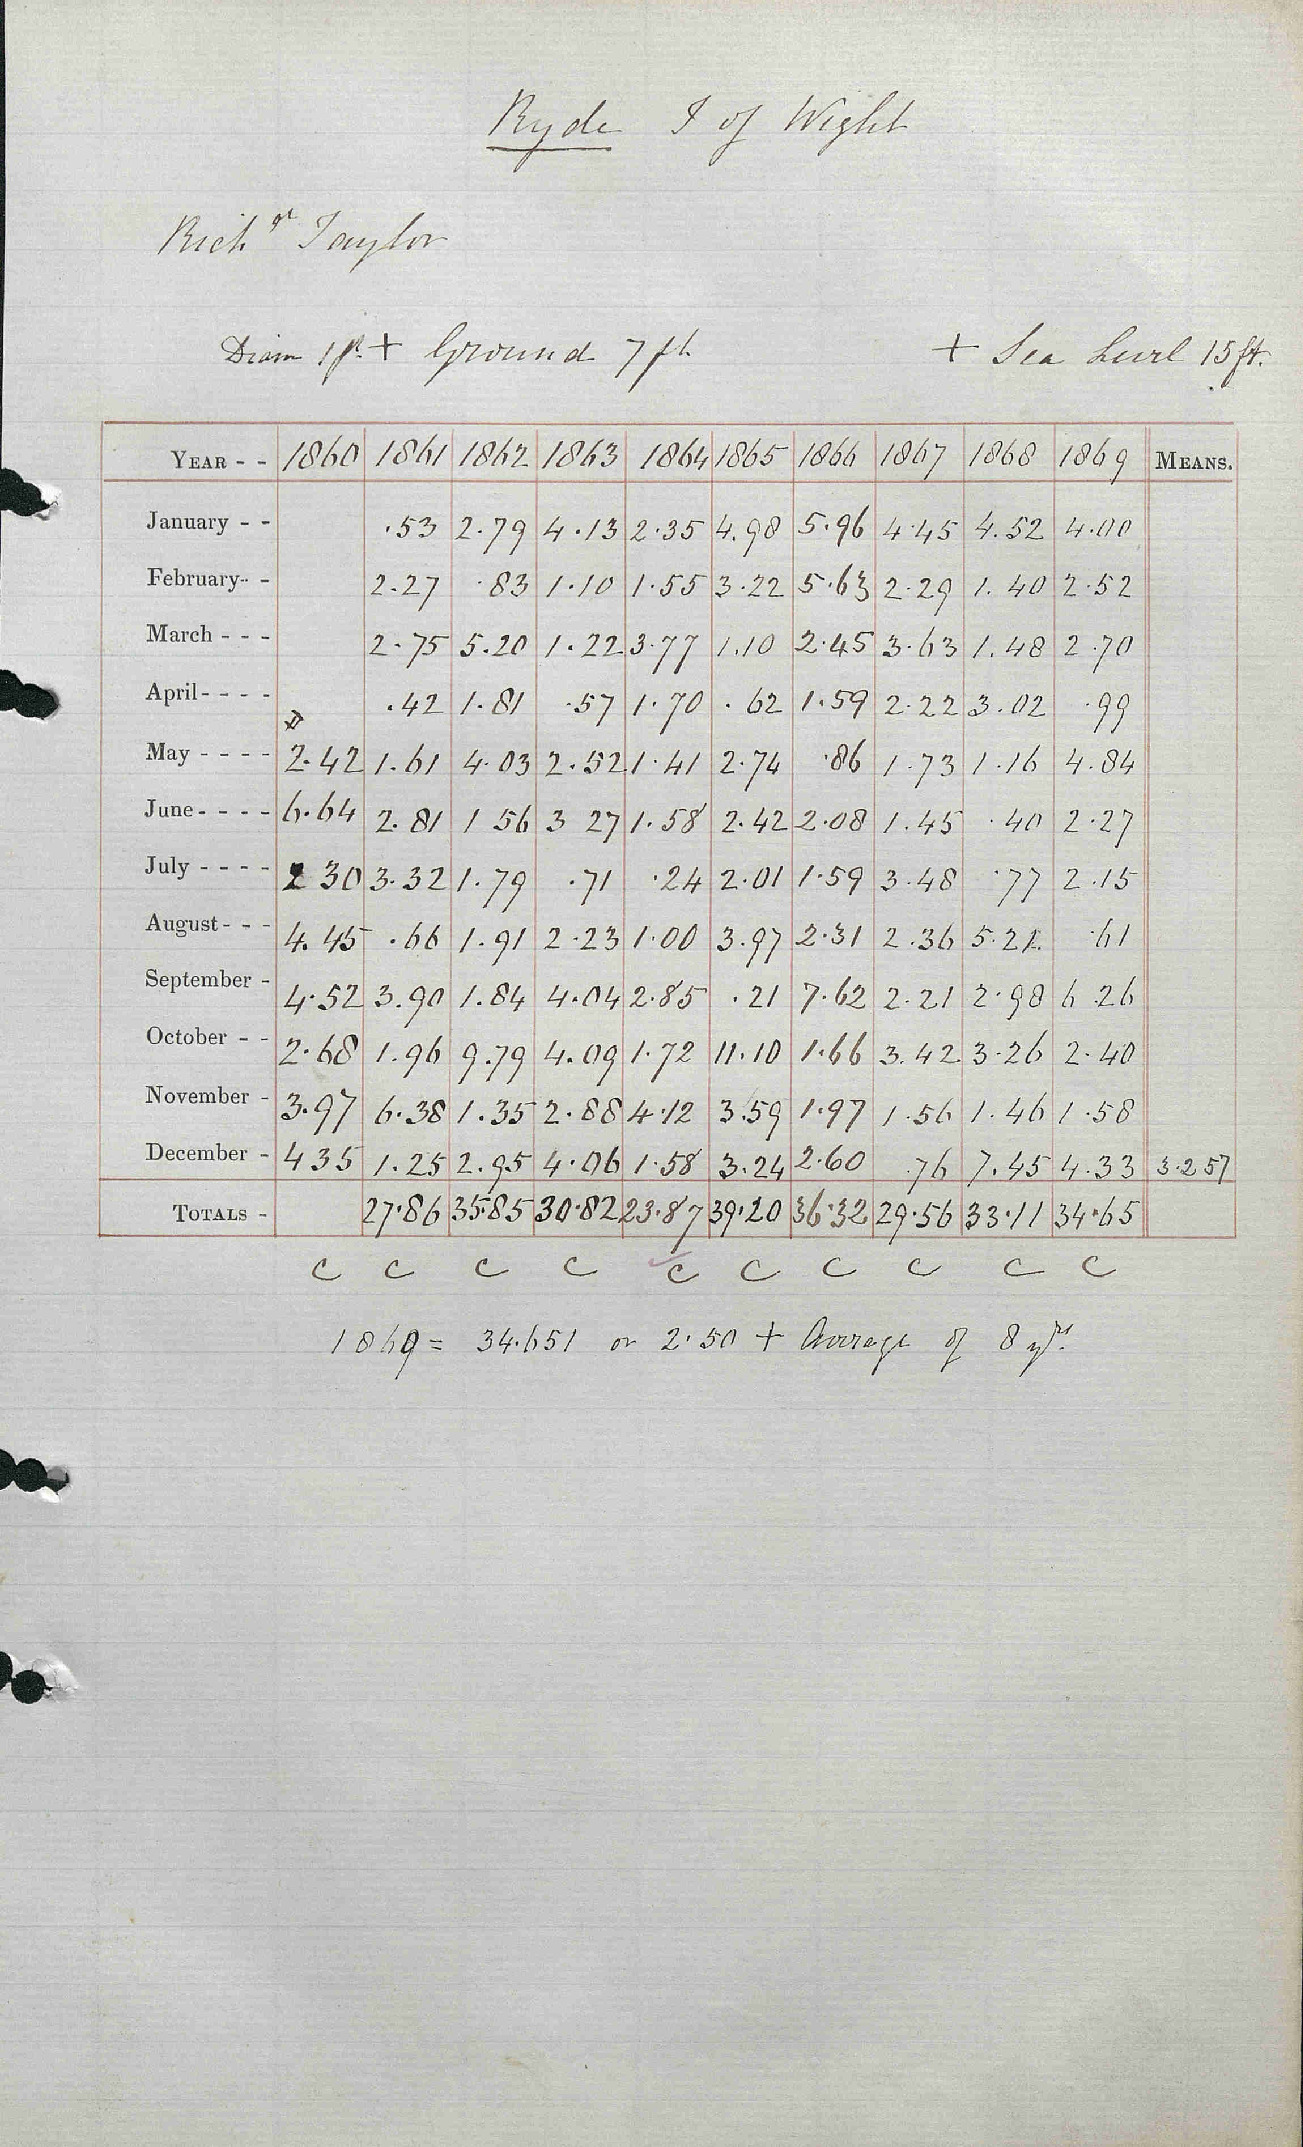 Ryde I of Wight
Richd Taylor
Diam 1ft + Ground 7 ft + Sea Level 15 ft.
YEAR - - 1860 1861 1862 1863 1864 1865 1866 1867 1868 1869 MEANS.
January - - .53 2.79 4.13 2.35 4.98 5.96 4.45 4.52 4.00
February - - 2.27 .83 1.10 1.55 3.22 5.63 2.29 1.40 2.52
March - - - 2.75 5.20 1.22 3.77 1.10 2.45 3.63 1.48 2.70
April - - - - .42 1.81 .57 1.70 .62 1.59 2.22 3.02 .99
May - - - - 2.42 1.61 4.03 2.52 1.41 2.74 .86 1.73 1.16 4.84
June - - - - 6.64 2.81 1 56 3 27 1.58 2.42 2.08 1.45 .40 2.27
July - - - - 2 30 3.32 1.79 .71 .24 2.01 1.59 3.48 .77 2.15
August - - - 4.45 .66 1.91 2.23 1.00 3.97 2.31 2.36 5.21 .61
September - 4.52 3.90 1.84 4.04 2.85 .21 7.62 2.21 2.98 6 26
October - - 2.68 1.96 9.79 4.09 1.72 11.10 1.66 3.42 3.26 2.40
November - 3.97 6.38 1.35 2.88 4.12 3.59 1.97 1.56 1.46 1.58
December - 4 35 1.25 2.95 4.06 1.58 3.24 2.60 .76 7.45 4.33 3.257
TOTALS - 27.86 35.85 30.82 23.87 39.20 36.32 29.56 33.11 34.65
C C C C C C C C C C
1869 = 34.651 or 2.50 + Average of 8 yrs.